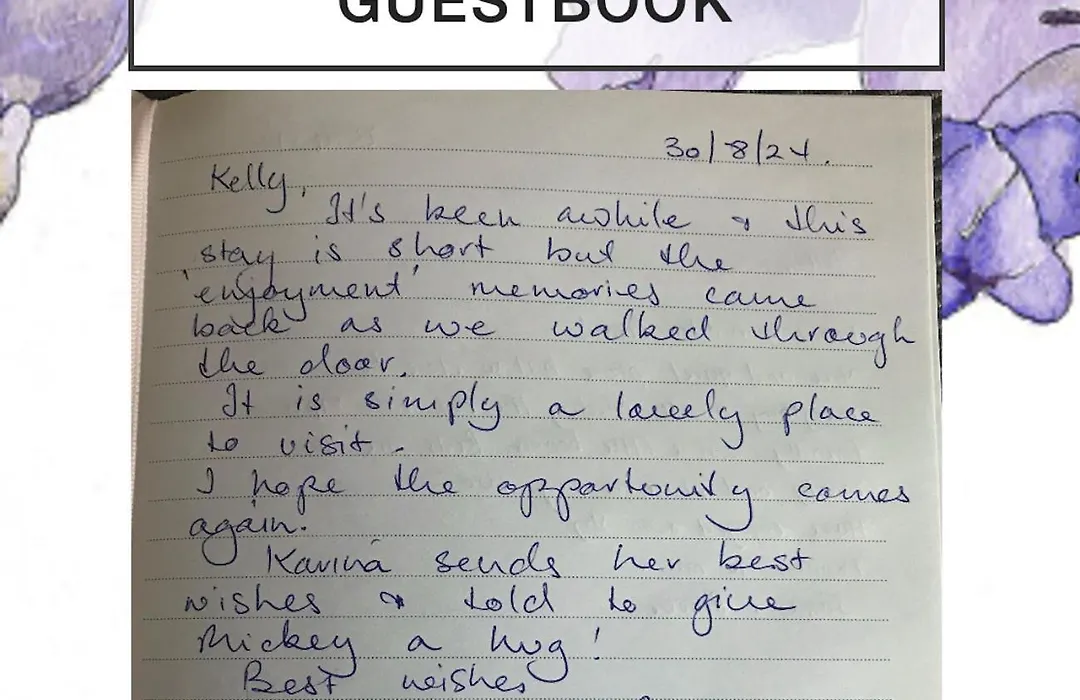 GUESTBOOK
30/8/24.
Kelly,
It's been awhile & this
stay is short but the
'enjoyment' memories came
back as we walked through
the door.
It is simply a lovely place
to visit.
I hope the opportunity comes
again.
Karina sends her best
wishes & told to give
Mickey a hug!
Best wishes